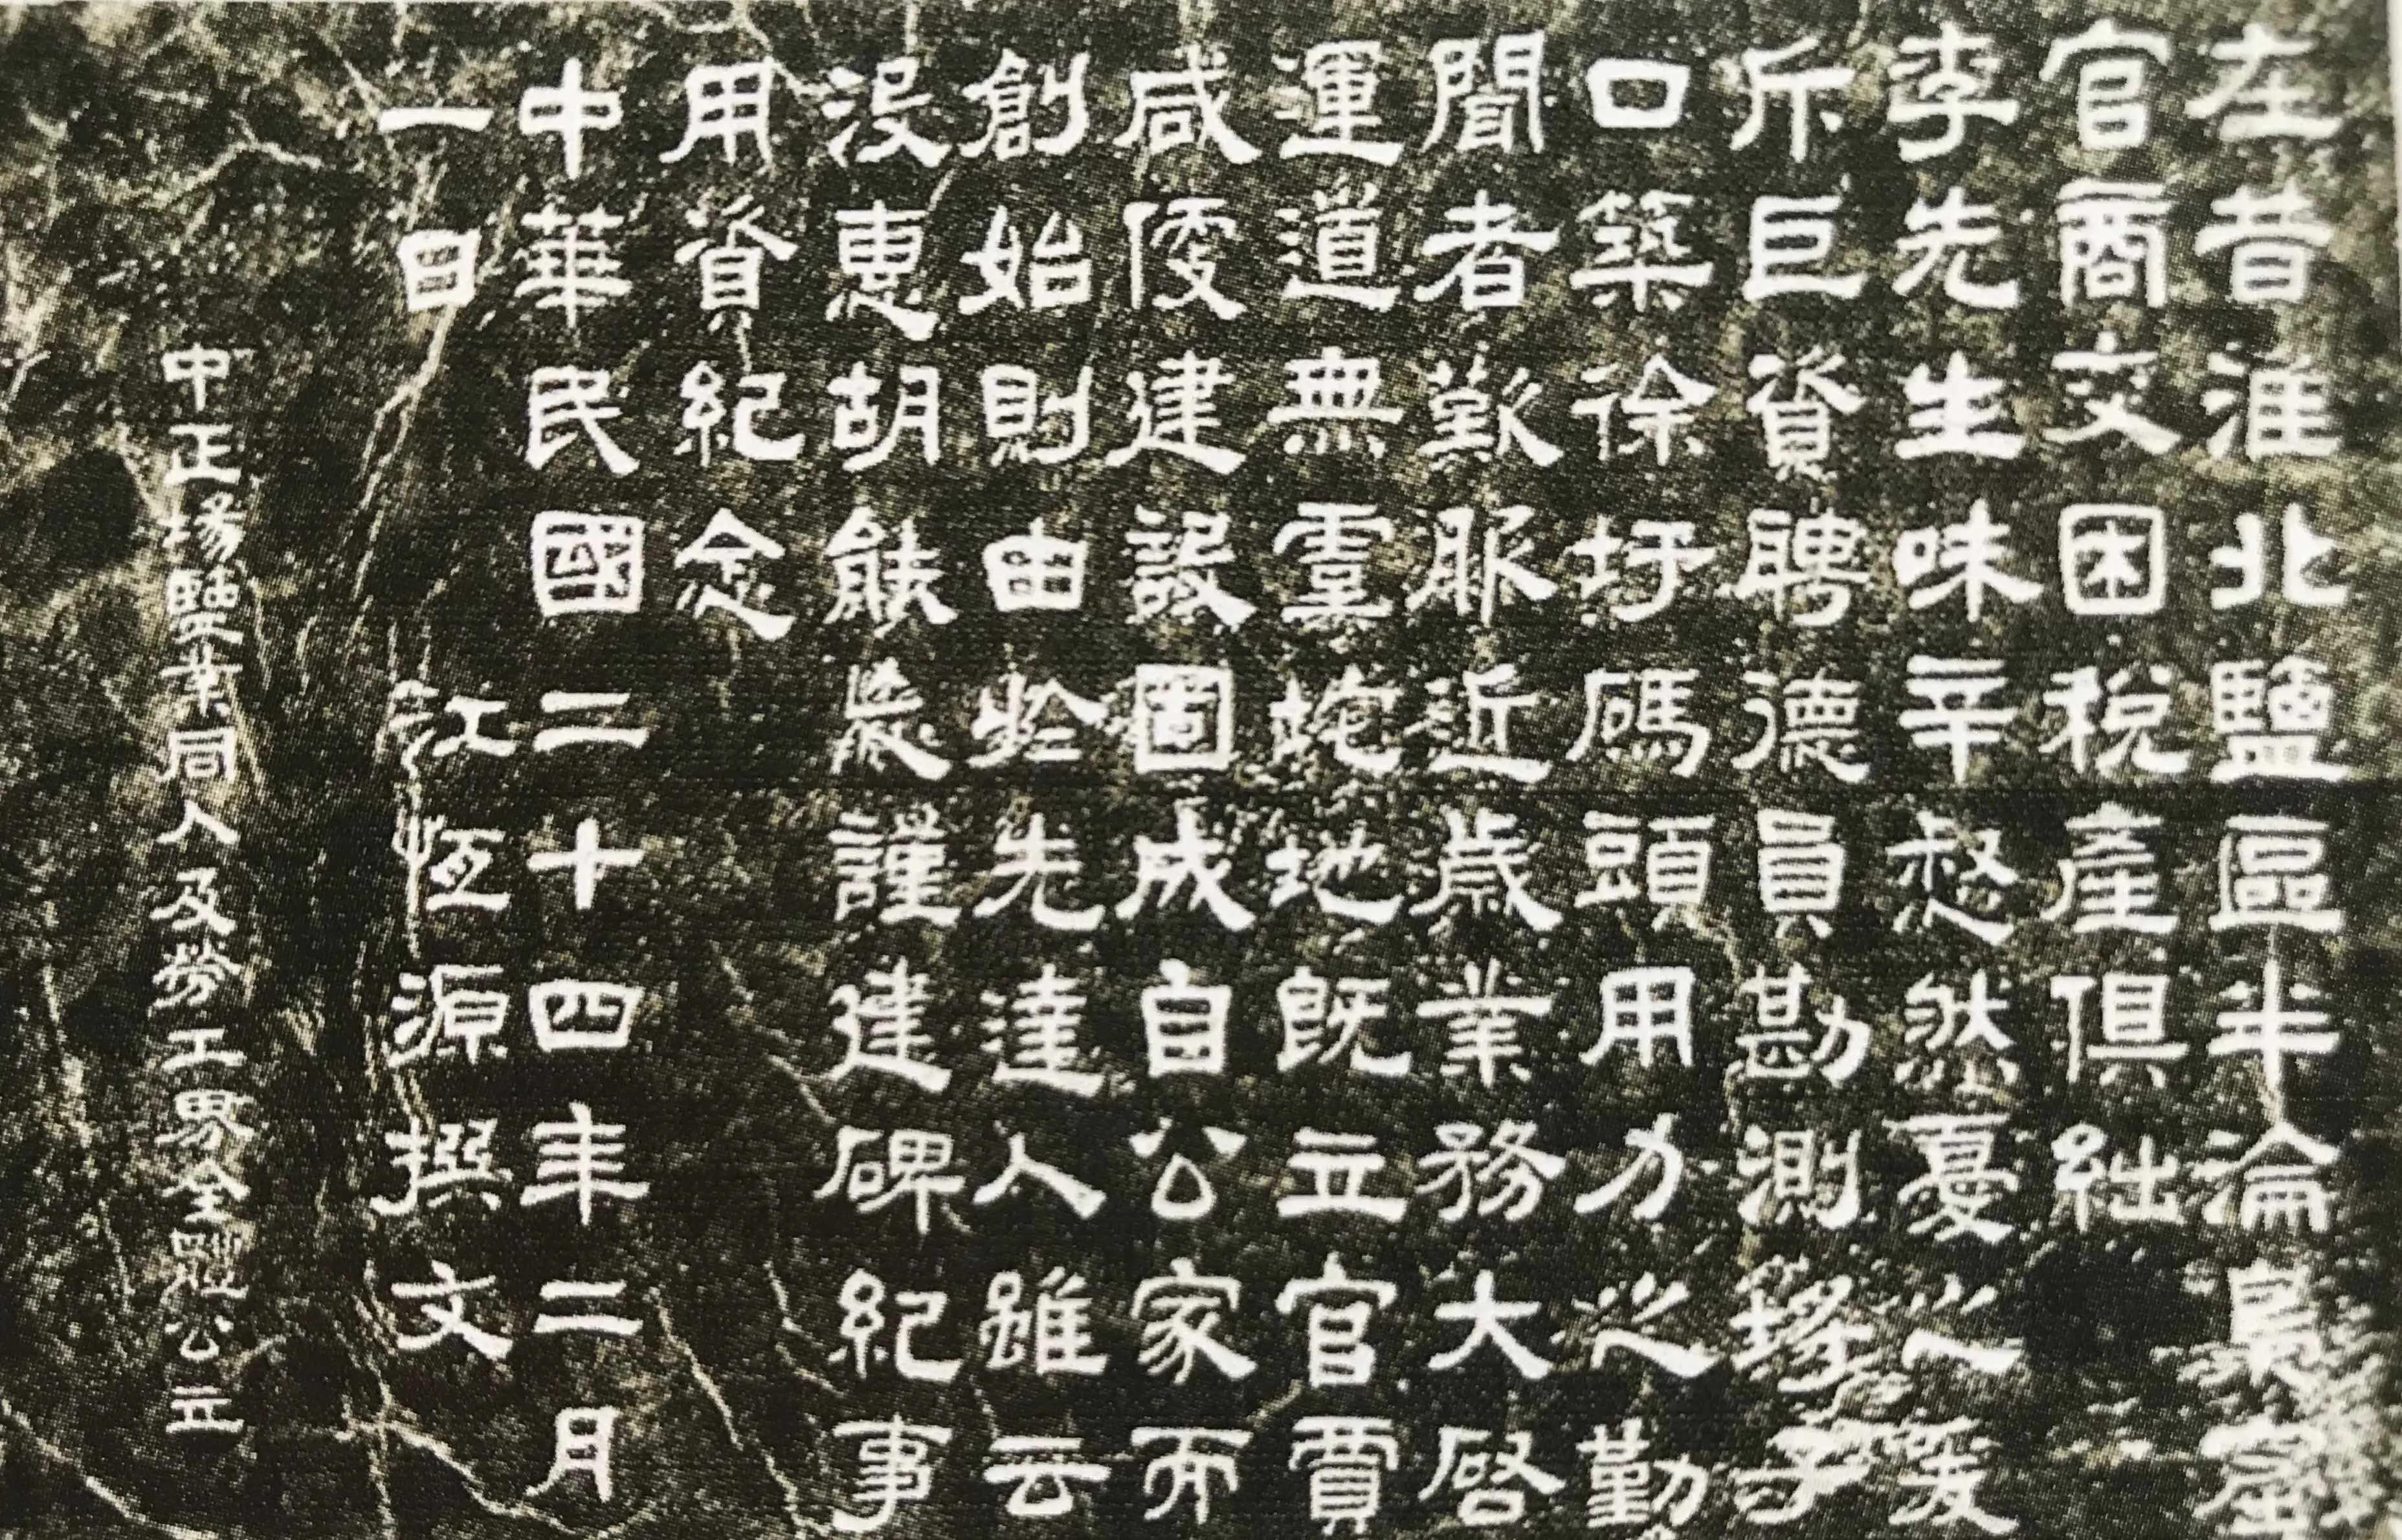 在昔淮北鹽區半淪梟窟
官商交困稅產俱絀
李先生味辛惄然憂之爰
斥巨資聘德員勘測埒子
口築徐圩碼頭用力之勤
聞者歎服近歲業務大啓
運道無虞坨地既立官賈
咸便建設固成自公家而
創始則由於先達人雖云
沒惠胡能謹建碑紀事
用資紀念
中華民國二十四年二月
一日 江恆源撰文
中正場鹽業同人及勞工界全體公立